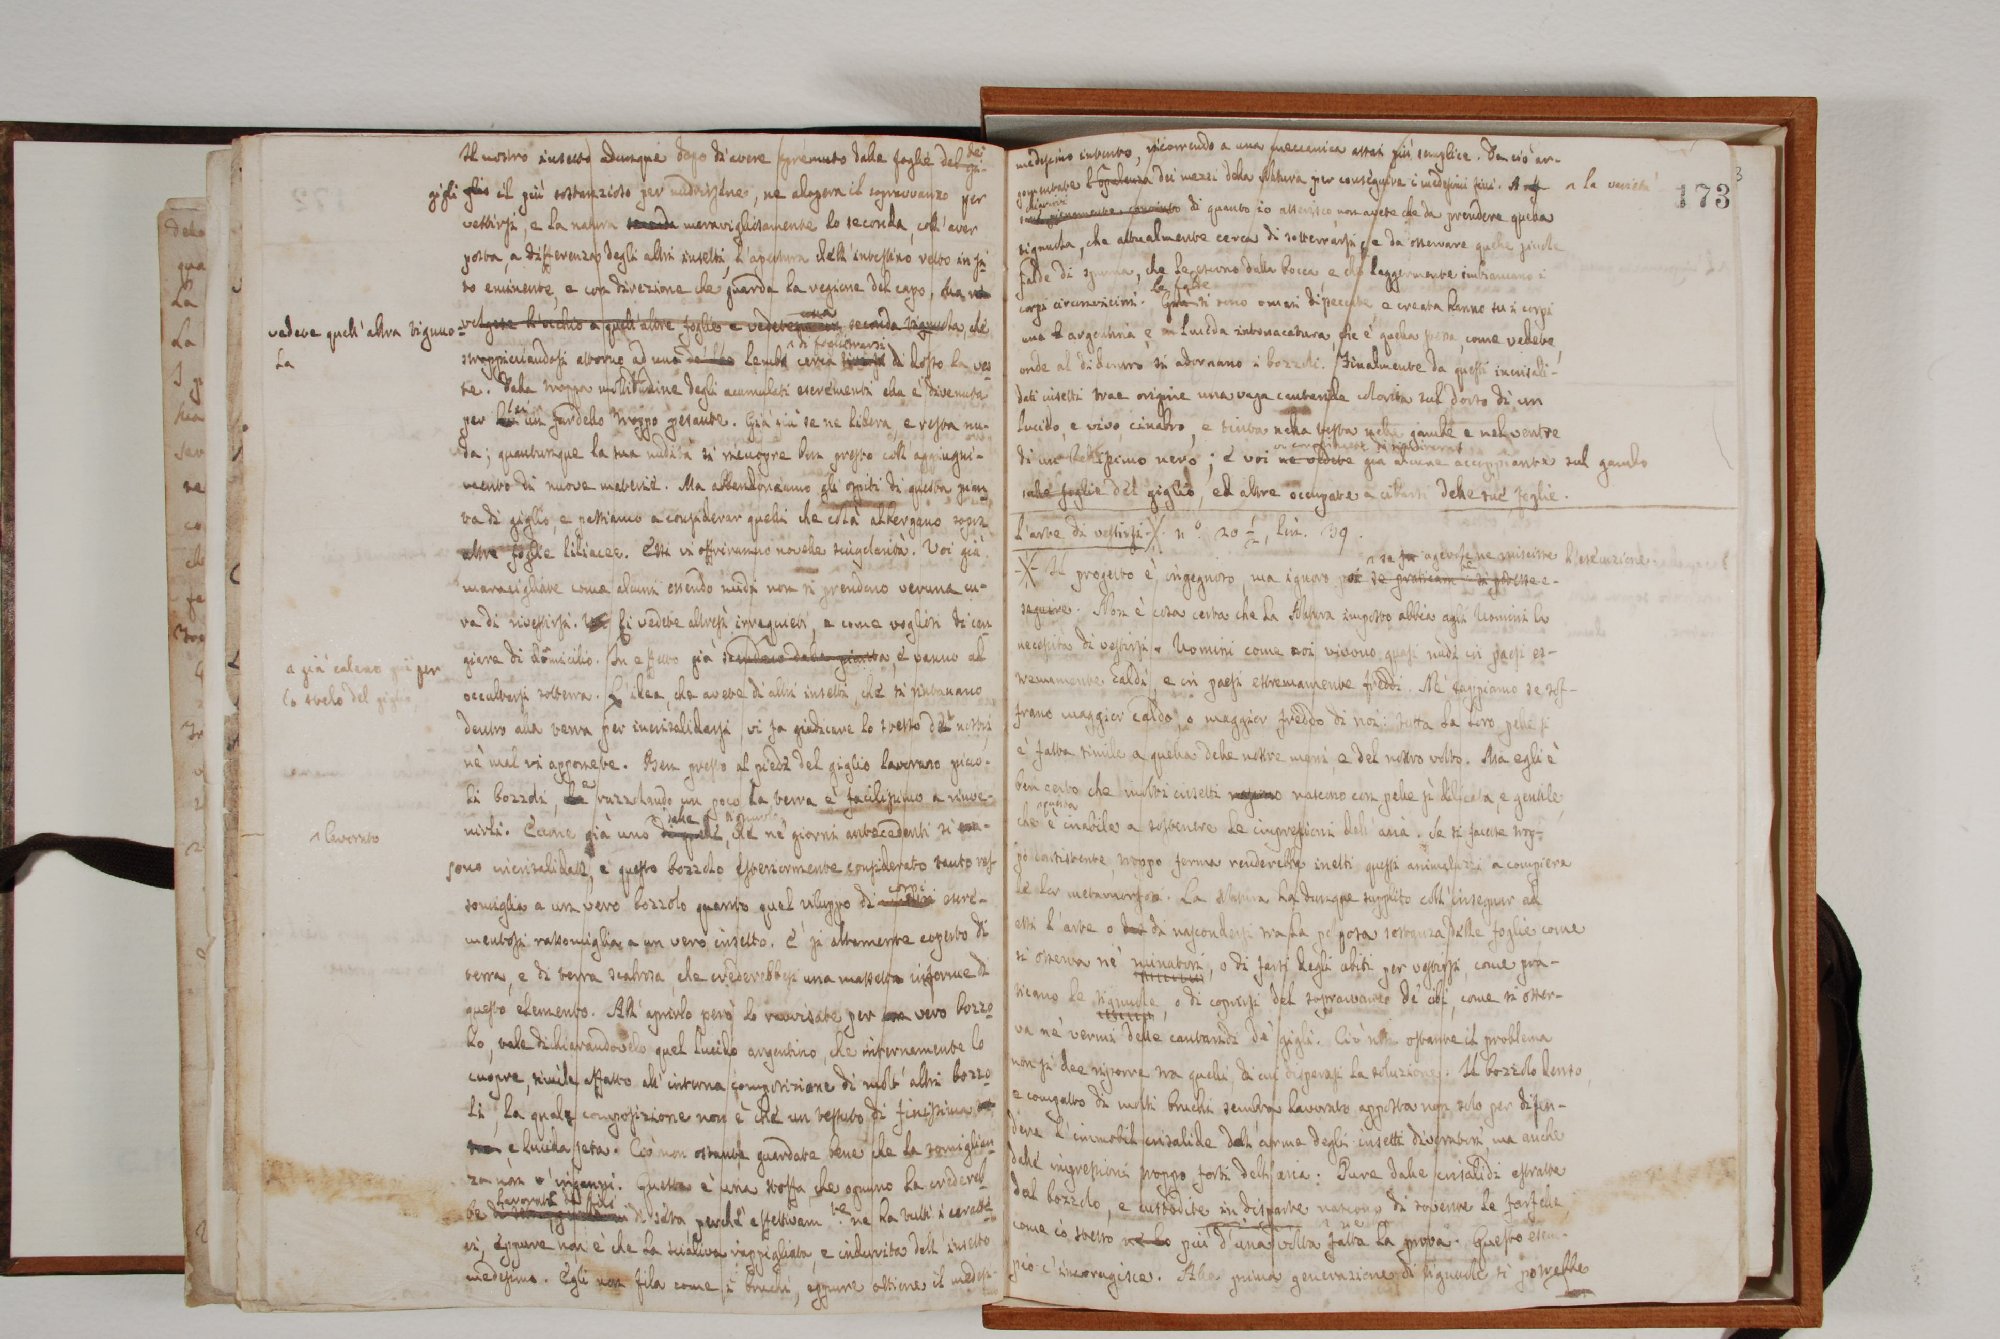 Il nostro insetto adunque dopo di avere spremuto dalle foglie del dei gi-
gigli glio il più sostanzioso per nudrirsene, ne adopera il sopravvanzo per
vestirsi, e la natura meravigliosamente lo seconda, coll'aver
posta, a differenza degli altri insetti, l'apertura dell'intestino retto in si-
to eminente, e con direzione che guarda la regione del capo. Ma
volgete l'occhio a quell'altre foglie e vedete una seconda tignuola, che
vedete quell'altra tignuo-
la
stroppicciandosi attorno ad una lembo cerca di spogliarsi di dosso la ves-
te. Dalla troppa moltitudine degli acumulati escrementi ella è divenuta
per lei un fardello troppo pesante. Già più se ne libera, e resta nu-
da; quantunque la sua nudità si ricuopre ben presto coll'aggiugni-
mento di nuove materie. Ma abbandoniamo gli ospiti di questa pian-
ta di giglio, e passiamo a considerar quelli che colà albergano sopra
altre foglie liliacee. Essi vi offriranno novelle singolarità. Voi già
maravigliate come alcuni essendo nudi non si prendano veruna cu-
ra di rivestirsi. Li vedete altresì irrequieti, e come vogliosi di can-
giare di domicilio. In effetto già scendono dalla pianta, e vanno ad
a già calano giù per
lo stelo del giglio
occultarsi sotterra. L'idea, che avete di altri insetti, che si rintanano
dentro alla terra per incrisalidarsi, vi fa giudicare lo stesso de' nostri,
nè mal vi apponete. Ben presto al piede del giglio lavorano picco-
li bozzoli, e ruzzolando un poco la terra è facilissimo a rinve-
nirli. Eccone già uno che ne' giorni antecedenti si
^ lavorato
sono incrisalidati, e questo bozzolo esteriormente considerato tanto ras-
somiglia a un vero bozzolo quanto quel viluppo di corpi escre-
mentosi rassomiglia a un vero insetto. È sì altamente coperto di
terra, e di terra scabrosa, che crederebbesi una massetta informe di
questo elemento. All'aprirlo però lo ravvisate per vero bozzo-
lo, tale dichiarandovelo quel lucido argentino, che internamente lo
cuopre, simile affatto all'interna composizione di molt'altri bozzo-
li, la quale composizione non è che un tessuto di finissima
e lucida seta. Ciò non ostante guardate bene che la somiglian-
za non v'inganni. Questa è una stoffa, che ognuno la credereb-
be lavorata di fili di seta perchè effettivam.te ne ha tutti i caratte-
ri, eppure non è che la scialiva rappigliata, e indurita dell'insetto
medesimo. Egli non fila come i bruchi, eppure ottiene il medesi-
173
medesimo intento, ricorrendo a una meccanica assai più semplice. Da ciò ar-
gomentate l'opulenza dei mezzi della Natura per conseguire i medesimi fini. A
^ la varietà
chiarirvi di quanto io asserisco non avete che da prendere quella
tignuola, che attualmente cerca di sotterrarsi, e da osservare quelle piccole
falde di spuma, che le escono dalla bocca e che leggermente imbrattano i
corpi circonvicini. Le falde si sono omai dissecate, e creata hanno su i corpi
una argentina, e lucida intonacatura, che è quella seta, come vedete,
onde al di dentro si adornano i bozzoli. Finalmente da questi incrisali-
dati insetti trae origine una vaga cantaride colorita sul dorso di un
lucido, e vivo cinabro, e tinta nella testa nelle gambe e nel ventre
di un bellissimo nero; e voi ne vedete già alcune accoppiate sul gambo
sulle foglie del giglio, ed altre occupate a cibarsi delle sue foglie.
L'arte di vestirsi X n.o 20 1/2, lin. 39.
X Il progetto è ingegnoso, ma ignoro poi se praticam.te si potesse e-
^ se agevole ne riuscisse l'esecuzione
seguire. Non è cosa certa che la Natura imposto abbia agli Uomini la
necessità di vestirsi. Uomini come noi vivono quasi nudi in paesi es-
tremamente caldi, e in paesi estremamente freddi. Nè sappiamo se sof-
frano maggior caldo, o maggior freddo di noi: tutta la loro pelle si
è fatta simile a quella delle nostre mani, e del nostro volto. Ma egli è
ben certo che molti insetti nascono con pelle sì dilicata, e gentile,
che questa è inabile a sostenere le impressioni dell'aria. Se si facesse trop-
po consistente, troppo ferma renderebbe inetti questi animaluzzi a compiere
le lor metamorfosi. La Natura ha dunque supplito coll'insegnar ad
essi l'arte o di nascondersi tra la polposa sostanza delle foglie, come
si osserva ne' minatori, o di farsi degli abiti per vestirsi, come pra-
ticano le tignuole, o di coprirsi del sopravvanzo de' cibi, come si osser-
va ne' vermi delle cantaridi de' gigli. Ciò non ostante il problema
non si dee riporre tra quelli, di cui disperasi la soluzione. Il bozzolo denso,
e compatto di molti bruchi sembra lavorato apposta non solo per difen-
dere l'immobil crisalide dall'arme degli insetti divoratori, ma anche
dalle impressioni troppo forti dell'aria: Pure dalle crisalidi estratte
dal bozzolo, e custodite in disparte nascono di sovente le farfalle,
come io stesso più d'una volta ne ho fatta la prova. Questo esem-
pio c'incoragisce. Alla prima generazione di tignuole si potrebbe